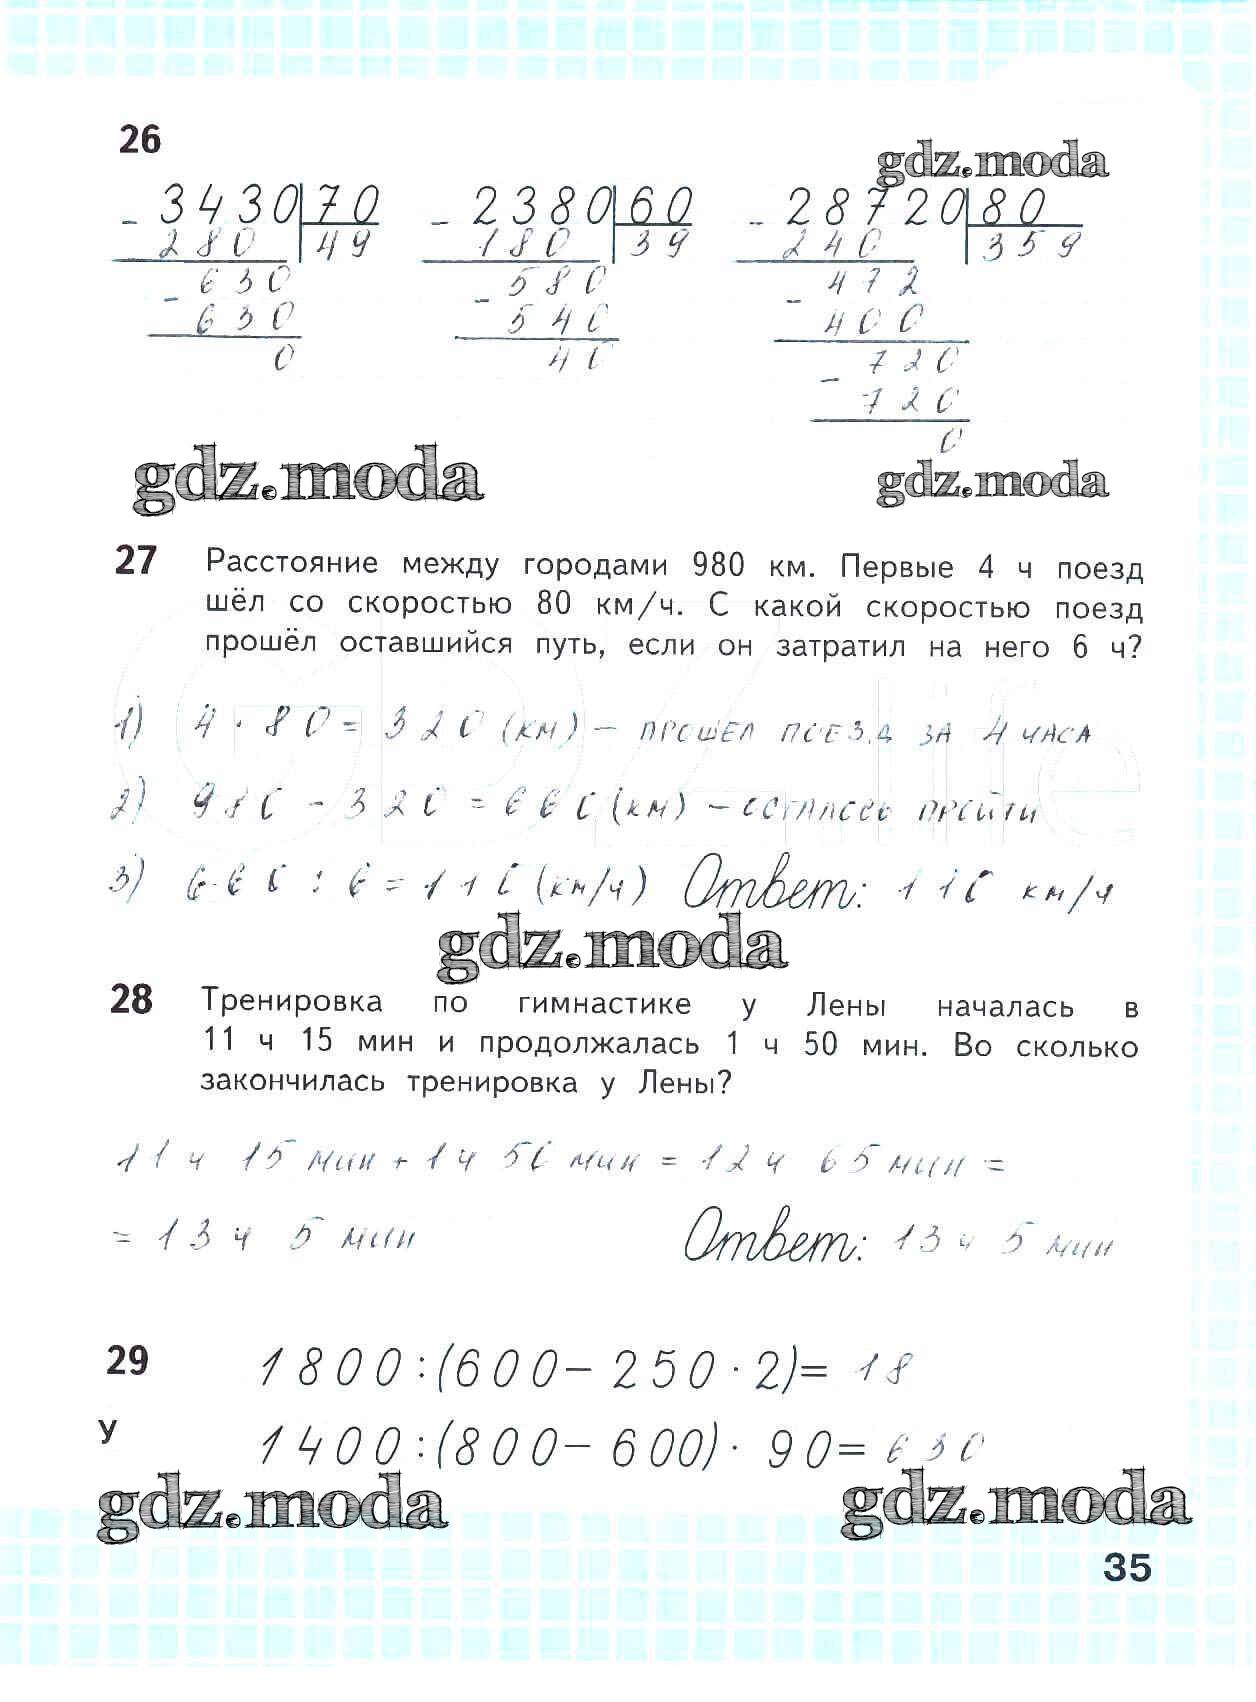 26
gdz.moda
- 3430 | 70 - 2380 | 60 - 28720 | 80
280 49 180 39 240 359
- 630 - 580 - 472
630 540 400
0 40 - 720
720
0
gdz.moda gdz.moda
27 Расстояние между городами 980 км. Первые 4 ч поезд
шёл со скоростью 80 км/ч. С какой скоростью поезд
прошёл оставшийся путь, если он затратил на него 6 ч?
1) 4 · 80 = 320 (км) – прошел поезд за 4 часа
2) 980 - 320 = 660 (км) – осталось пройти
3) 660 : 6 = 110 (км/ч) Ответ: 110 км/ч
gdz.moda
28 Тренировка по гимнастике у Лены началась в
11 ч 15 мин и продолжалась 1 ч 50 мин. Во сколько
закончилась тренировка у Лены?
11 ч 15 мин + 1 ч 50 мин = 12 ч 65 мин =
= 13 ч 5 мин Ответ: 13 ч 5 мин
29 1800:(600– 250 · 2)= 18
У 1400:(800– 600) · 90= 630
gdz.moda gdz.moda
35